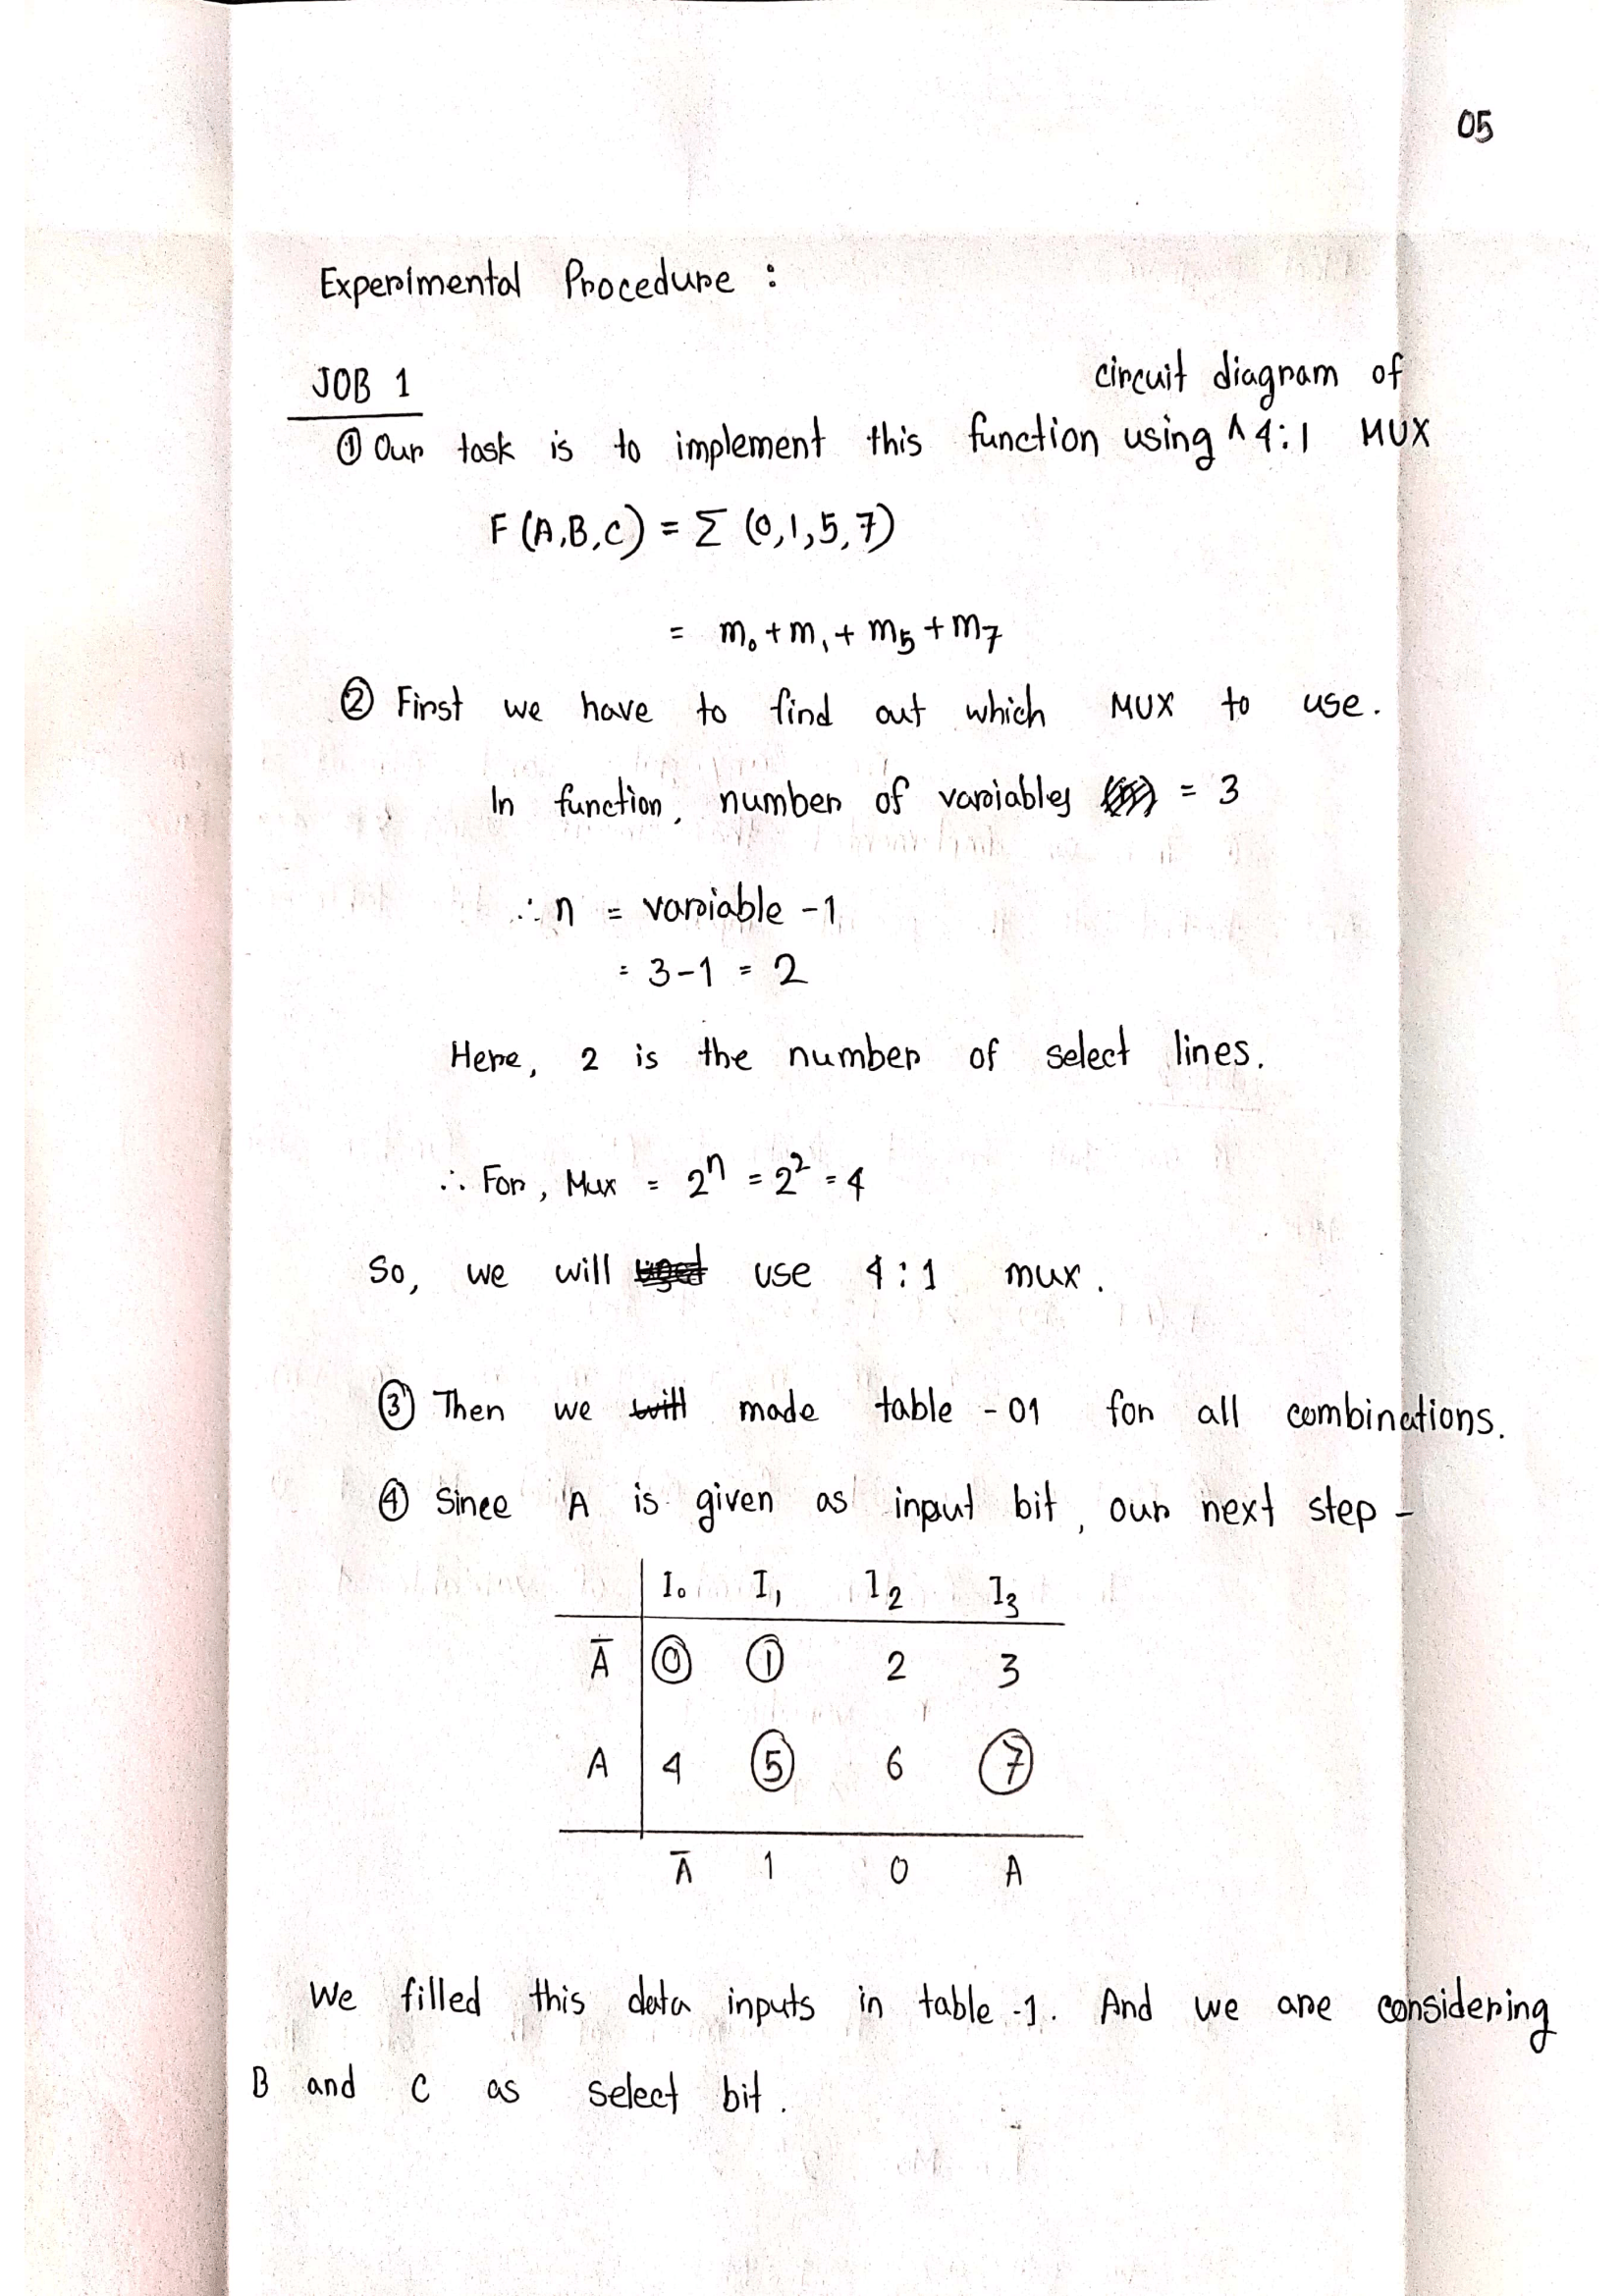 05
Experimental Procedure :
JOB 1
circuit diagram of
① Our task is to implement this function using ^ 4:1 MUX
F (A,B,C) = Σ (0,1,5,7)
= m₀ + m₁ + m₅ + m₇
② First we have to find out which MUX to use.
In function, number of variables = 3
∴ n = variable -1
= 3-1 = 2
Here, 2 is the number of select lines.
∴ For, Mux = 2ⁿ = 2² = 4
So, we will used use 4:1 mux.
③ Then we will made table -01 for all combinations.
④ Since A is given as input bit, our next step -
I₀ I₁ I₂ I₃
Ā ⓪ ① 2 3
A 4 ⑤ 6 ⑦
Ā 1 0 A
We filled this data inputs in table -1. And we are considering
B and C as select bit.